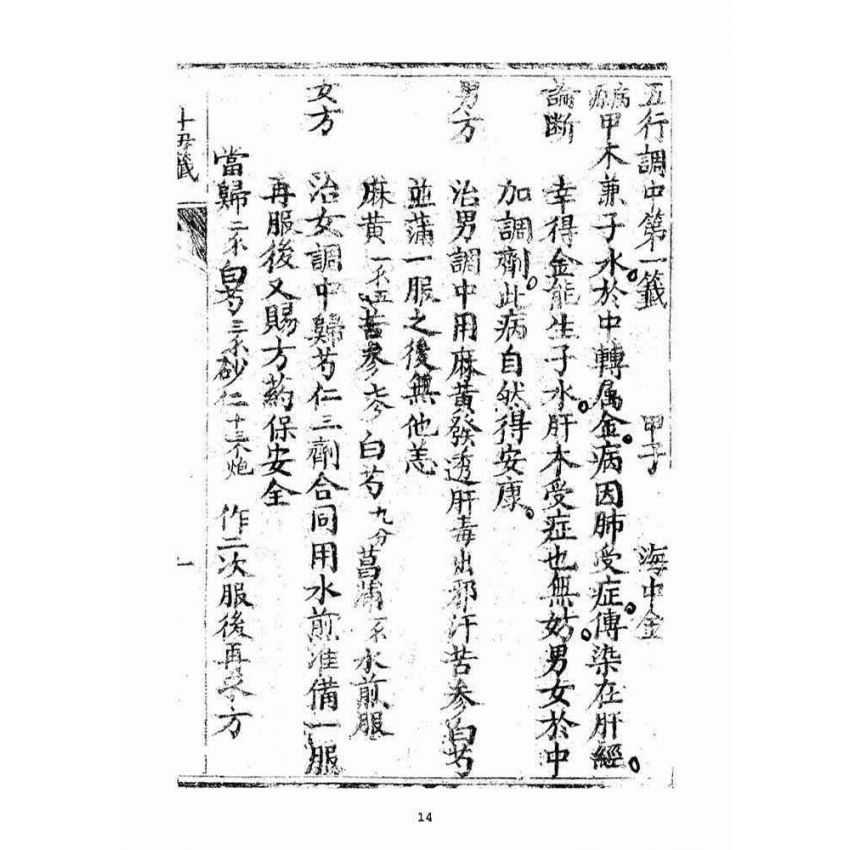 五行調中第一籤 甲子 海中金
病源 甲木兼子水於中轉属金病因肺受症傳染在肝經
論断 幸得金能生子水肝木受症也無妨男女於中
加調劑此病自然得安康
男方 治男調中用麻黄發透肝毒出邪汗苦参白芍
並蒲一服之後無他恙
麻黄 苦参 白芍九分菖蒲 水煎服
女方 治女調中歸芍仁三劑合同用水煎准備一服
再服後又賜方葯保安全
當歸 白芍 砂仁 炮 作二次服後再 方
籤
一
14